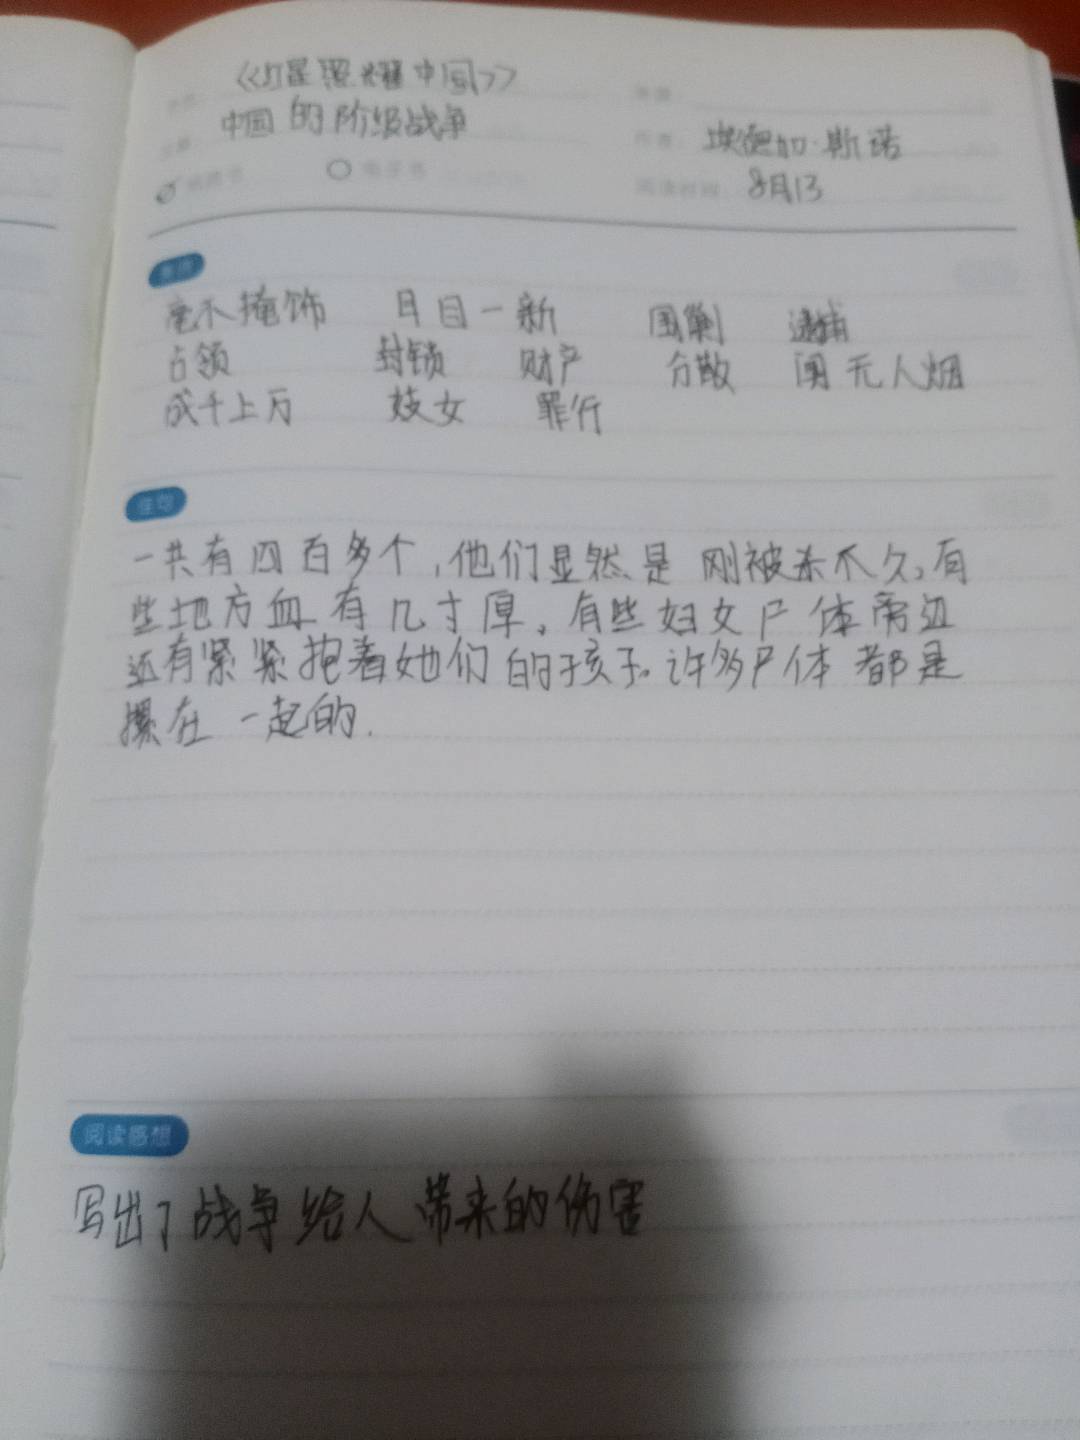 《红星照耀中国》
中国的阶级战争
埃德加·斯诺
8月13
毫不掩饰 日目一新 围剿 逮捕
占领 封锁 财产 分散 阒无人烟
成千上万 妓女 罪行
佳句
一共有四百多个,他们显然是刚被杀不久,有
些地方血有几寸厚。有些妇女尸体旁边
还有紧紧抱着她们的孩子。许多尸体都是
摞在一起的.
阅读感想
写出了战争给人带来的伤害